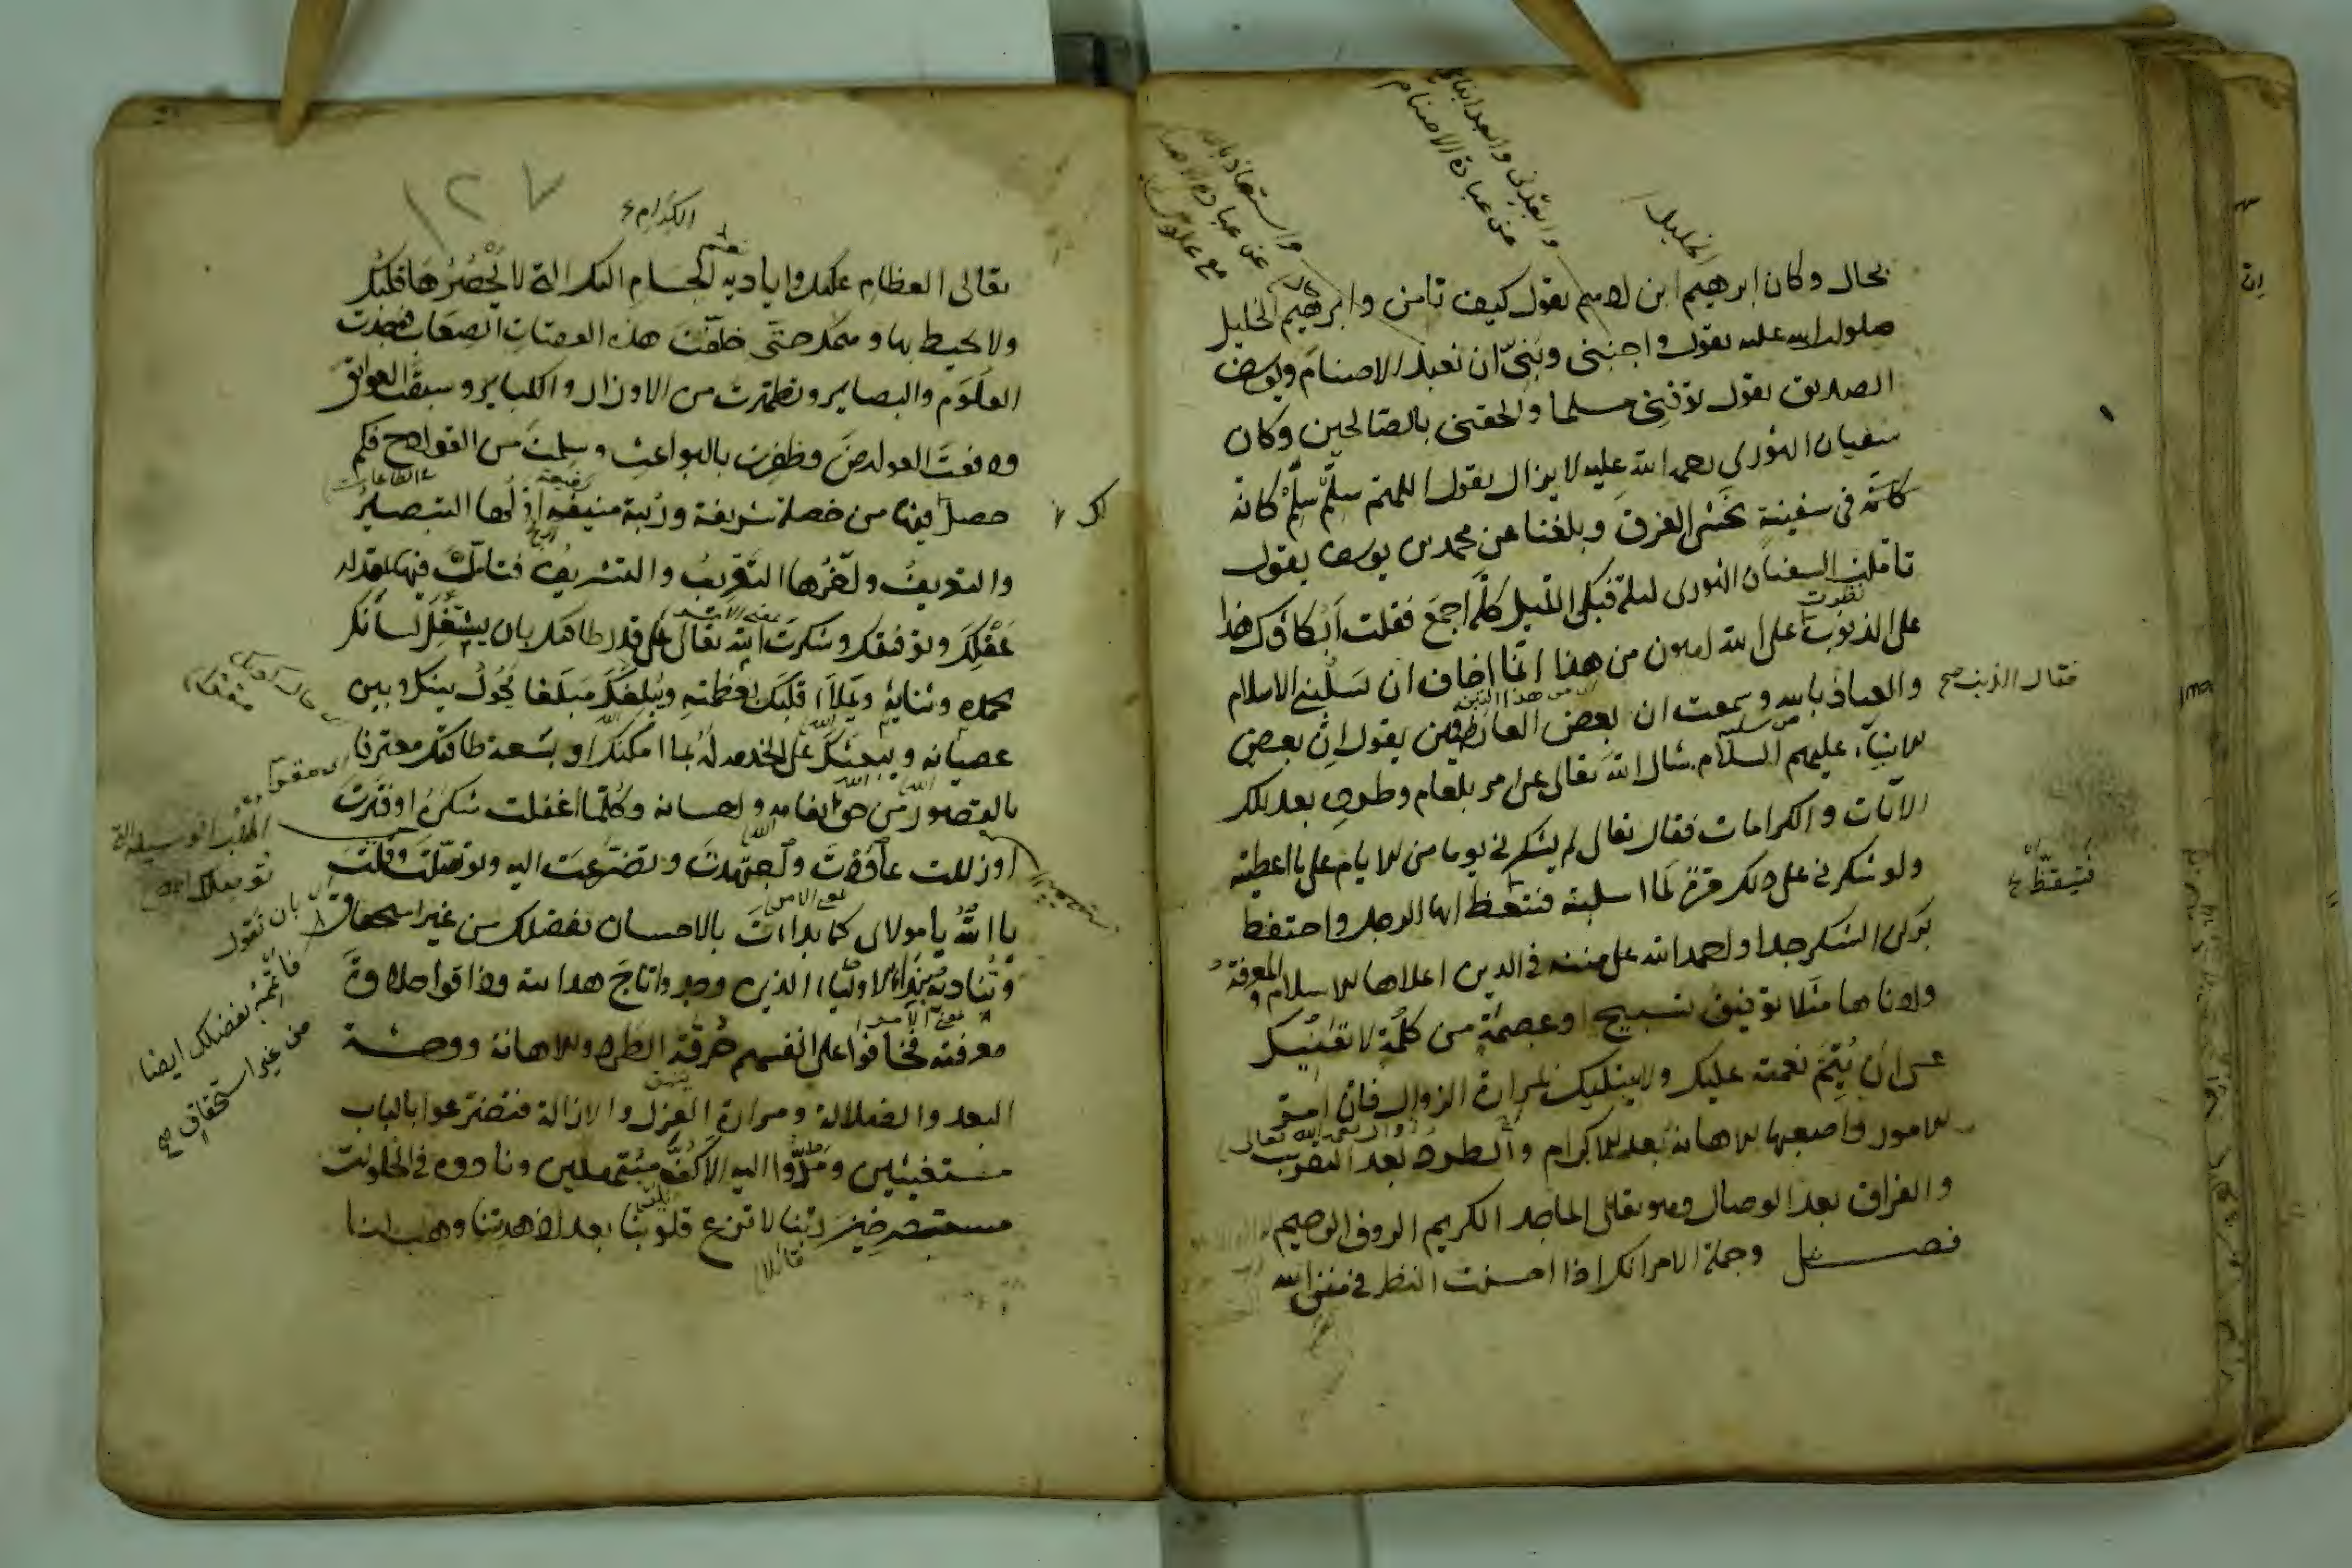 بحال وكان ابرهيم ابن ادهم يقول كيف تامن وابرهيم الخليل
صلوات الله عليه يقول واجنبنى وبنىّ ان نعبد الاصنام ويوسف
الصديق يقول توفنى مسلما والحقنى بالصالحين وكان
سفيان الثورى رحمه الله عليه لا يزال يقول اللهم سلّم سلّم كانه
كانه فى سفينة يخشى الغرق وبلغنا عن محمد بن يوسف يقول
تاملت السفيان الثورى ليلة فبكى الليل كله اجمع فقلت ابكاؤك هذا
على الذنوب على الله اهون من هذا انما اخاف ان يسلبنى الاسلام
والعياذ بالله وسمعت ان بعض العارفين يقول ان بعض
الانبياء عليهم السلام سال الله تعالى عن امر بلعام وطرده بعد تلك
الآيات والكرامات فقال تعالى لم يشكرنى يوما من الايام على ما اعطيته
ولو شكرنى على ذلك مرة لما اسلبته فتيقظ ايها الرجل واحتفظ
بركن الشكر جدا واحمد الله على مننه فى الدين اعلاها الاسلام والمعرفة
وادناها مثلا توفيق تسبيح او عصمة من كلمة لا تعنيك
عسى ان يتم نعمته عليك ولا يبتليك بمرارة الزوال فان امر
الامور واصعبها الاهانة بعد الاكرام والطرد بعد التقريب
والفراق بعد الوصال وهو تعالى الماجد الكريم الروف الرحيم
فصل وجملة الامر انك اذا احسنت النظر فى منن الله
الخليل
فقال الذنب صح
نظرت
فتيقظ
عن عبادة الاصنام
الكرام
١٢٧
تعالى العظام عليك واياديه الجسام اليك التى لا يحصرها قلبك
ولا يحيط بها وهمك حتى خلفت هذه العقبات الصعاب فوجدت
العلوم والبصاير وتطهرت من الاوزار والكباير وسبقت العوائق
ودفعت العوارض وظفرت بالبواعث وسلمت من القوادح فكم
حصل فيها من خصلة شريفة ورتبة منيفة اولها التبصير
والتعريف واخرها التقريب والتشريف فتاملت فيها بقدر
عقلك وتوفيقك وشكرت الله تعالى على قدر طاقتك بان يشغل لسانك
بحمده وثنايه ويملأ قلبك بعظمته ويبلغك مبلغا يحول بينك وبين
عصيانه ويبعثك على الخدمة له بما امكنك او بسعة طاقتك معترفا
بالقصور عن حق انعامه واحسانه وكلما اغفلت شكره او فترت
او زللت عاودت واجتهدت وتضرعت اليه وتوسلت وقلت
يا الله يا مولاى كما بدات بالاحسان بفضلك من غير استحقاق
وتناديه بنداء الاولياء الذين وجدوا تاج هدايته وذاقوا حلاوة
معرفته فخافوا على انفسهم حرقة الطرد والاهانة ووحشة
البعد والضلالة ومرارة العزل والازالة فتضرعوا بالباب
مستغيثين ومدوا اليه الاكف مبتهلين ونادوه فى الخلوات
مستصرخين ربنا لا تزغ قلوبنا بعد اذ هديتنا وهب لنا
لك
بان تقول
فاتمه بفضلك ايضا
من غير استحقاق صح